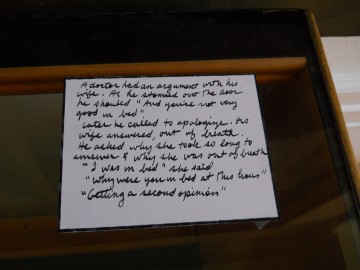 A doctor had an argument with his
wife. As he stomed out the door
he shouted "And you're not very
good in bed"
Later he called to apologize. His
wife answered, out of breath.
He asked why she took so long to
answer & why she was out of breath
"I was in bed" she said
"Why were you in bed at this hour"
"Getting a second opinion"